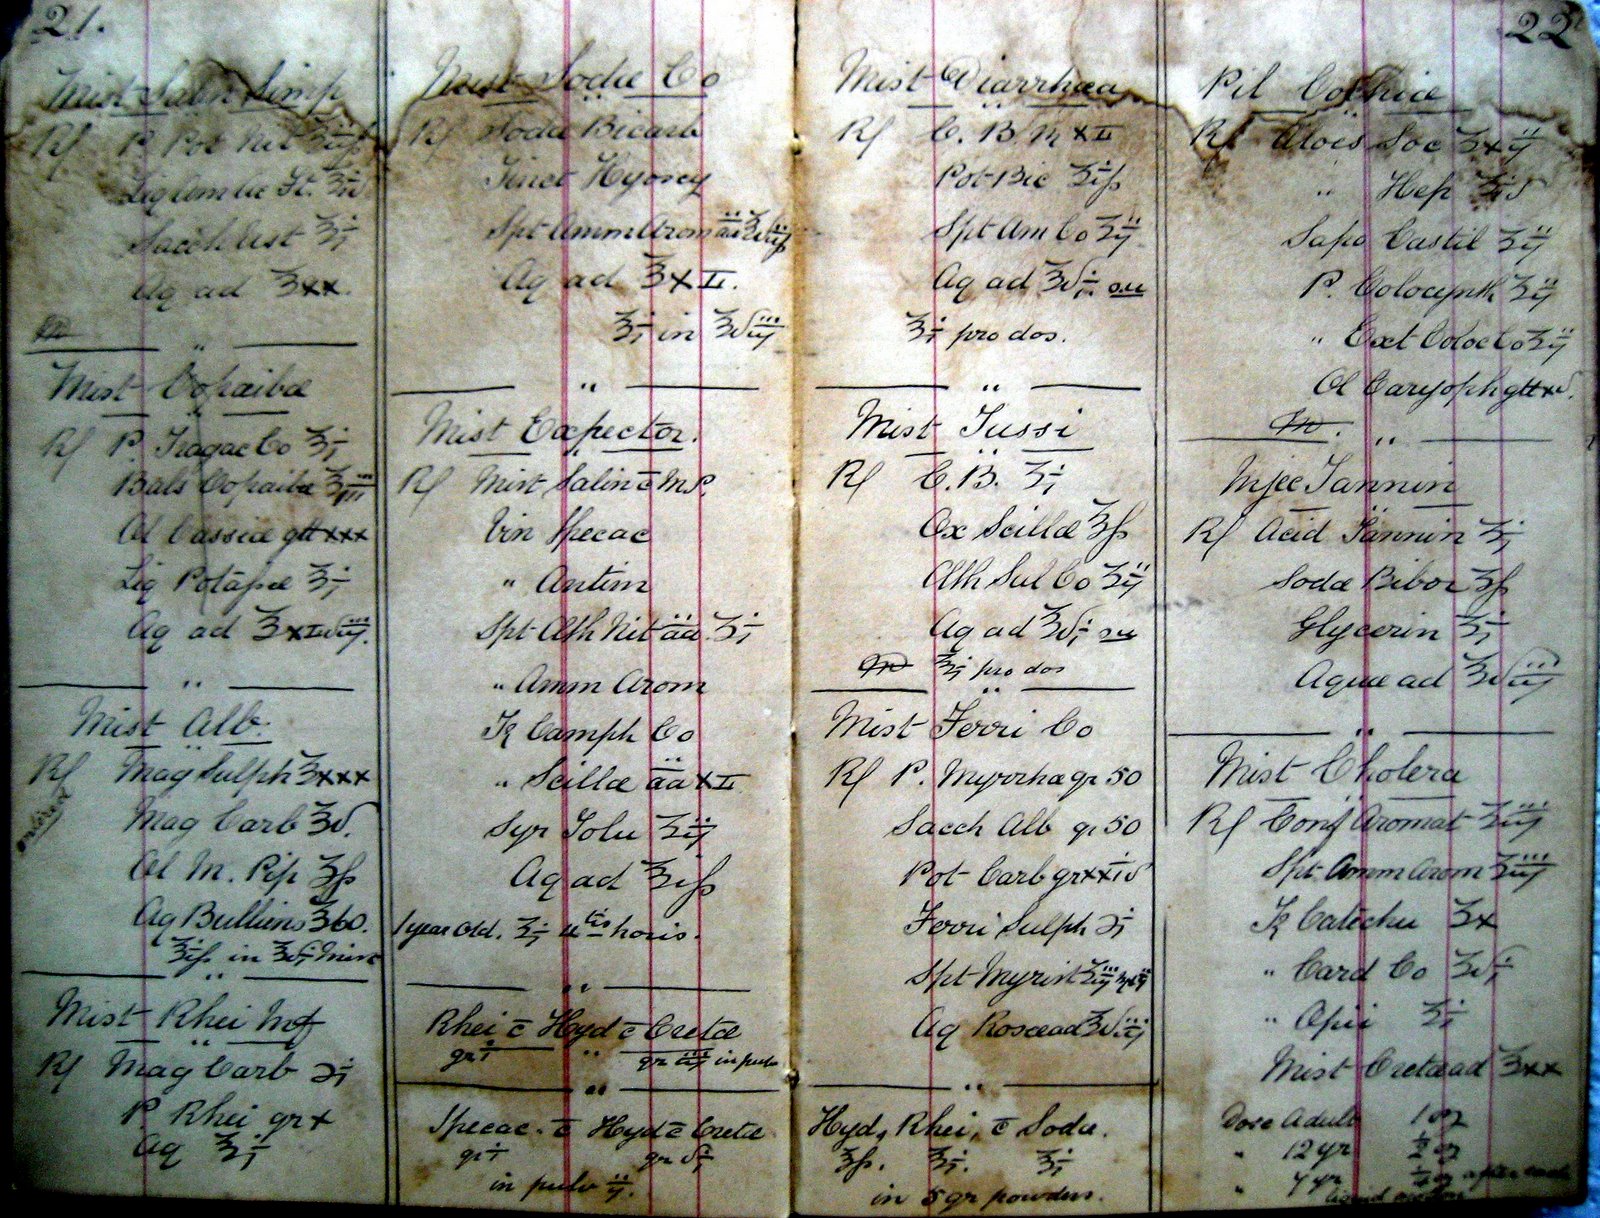 21.
Mist Salin Simp
Rf P. Pot Nit
Liq Am Ac Ft.
Sacch Ust ʒi
Aq ad ℥xx.
m
Mist Copaibæ
Rf P. Tragac Co ʒi
Bals Copaibæ ʒiii
Ol Cassiæ gtt xxx
Liq Potassæ ʒi
Aq ad
Mist Alb.
Rf Mag Sulph ℥xxx
Mag Carb ℥v.
Ol M. Pip ʒß
Aq Bulliens ℥60.
℥iß in ℥vi Mist
Mist Rhei Inf
Rf Mag Carb ℈i
P. Rhei gr x
Aq ℥i
Mist Sodæ Co
Rf Sodæ Bicarb
Tinct Hyoscy
Spt Amm Arom aa
Aq ad ℥xII.
℥i in ℥viii
Mist Expector.
Rf Mist Salin c̄ M.S.
Vin Ipecac
" Antim
Spt Æth Nit aa ʒi
" Amm Arom
Tr Camph Co
" Scillæ aa xII
Syr Tolu ʒii
Aq ad ℥iß
1 year old. ʒi 4tis horis.
Rhei c̄ Hyd c̄ Cretæ
gr i " gr iii in pulv
Ipecac. c̄ Hyd c̄ Cretæ
gr i gr vi
in pulv ii.
22
Mist Diarrhœa
Rf C. B. ɱ xII
Pot Bic ʒiß
Spt Am Co ʒii
Aq ad ℥vi
℥i pro dos.
Mist Tussi
Rf C. B. ʒi
Ox Scillæ ℥ß
Æth Sul Co ʒii
Aq ad ℥vi
m ℥i pro dos
Mist Ferri Co
Rf P. Myrrha gr 50
Sacch Alb gr 50
Pot Carb gr xxiv
Ferri Sulph ℈i
Spt Myrist
Aq Rosæ ad ℥viii
Hyd, Rhei, c̄ Soda.
ʒß. ʒi. ʒi
in 5 gr powders.
Pil Cochiæ
Rf Aloes Soc ʒxii
" Hep
Sapo Castil ʒii
P. Colocynth ʒii
" Ext Coloc Co ʒii
Ol Caryoph gtt xv.
m.
Injec Tannin
Rf Acid Tannin ʒi
Sodæ Bibor ʒß
Glycerin ℥i
Aquæ ad ℥viii
Mist Cholera
Rf Conf Aromat ʒiii
Spt Amm Arom ʒiii
Tr Catechu ʒx
" Card Co ʒvi
" Opii ʒi
Mist Cretæ ad ℥xx
Dose Adult 1 oz
" 12 yr ½ oz
" 7 yr ¼ oz after each
liquid motion